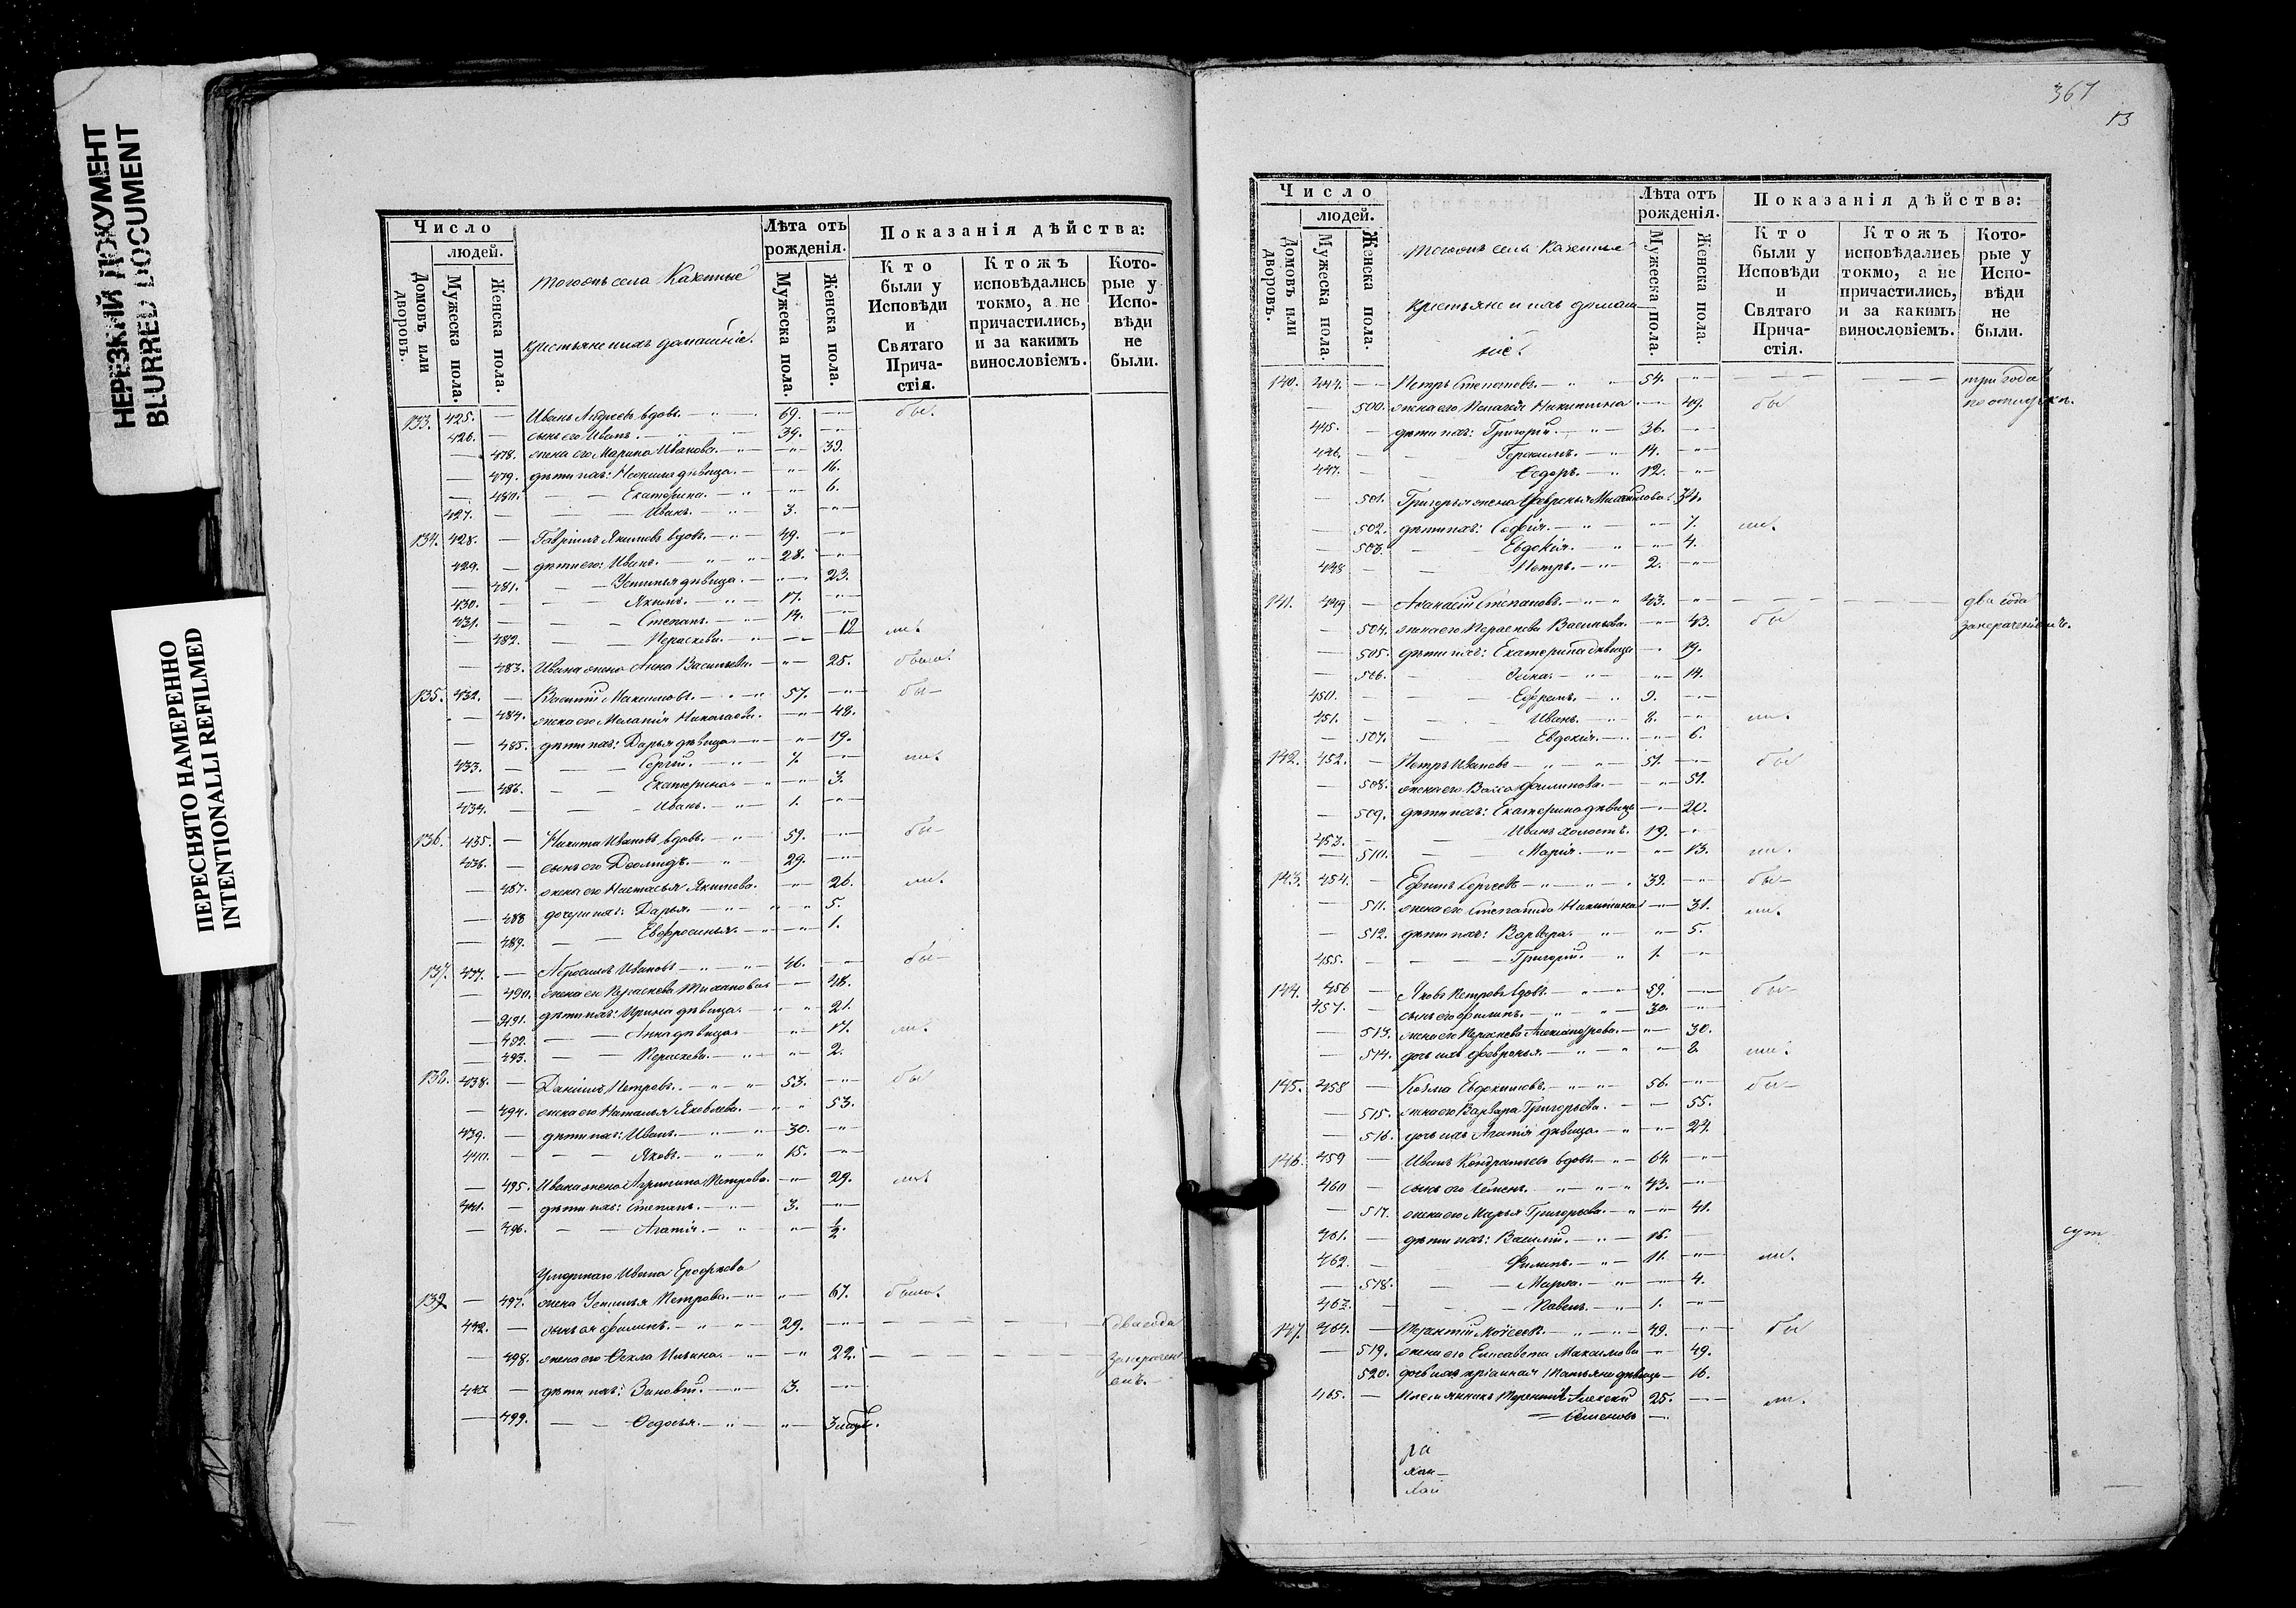 НЕРЕЗКИЙ ДОКУМЕНТ
BLURRED DOCUMENT
ПЕРЕСНЯТО НАМЕРЕННО
INTENTIONALLI REFILMED
Число
людей.
Домовъ или дворовъ.
Мужеска пола.
Женска пола.
Тогожъ села Казенные
крестьяне и ихъ домашніе.
Лѣта отъ рожденія.
Мужеска пола.
Женска пола.
Показанія дѣйства:
Кто были у Исповѣди и Святаго Причастія.
Ктожъ исповѣдались токмо, а не причастились, и за какимъ винословіемъ.
Которые у Исповѣди не были.
133. 425. — Иванъ Андреевъ вдовъ. 69. бы.
426. — сынъ его Иванъ. 39.
— 478. жена его Марина Иванова. 39.
— 479. дѣти ихъ: девица. 16.
— 480. Екатерина. 6.
427. — Иванъ. 3.
134. 428. — Гавріилъ Якимовъ вдовъ. 49.
429. — дѣти его: Иванъ. 28.
— 481. Устинья дѣвица. 23.
430. — Якимъ. 17.
431. — Степанъ. 14.
— 482. Параскева. 12 ли.
— 483. Ивана жена Анна Васильева. 25. была.
135. 432. — Василій Максимовъ. 57. бы—
— 484. жена его Меланія Николаева. 48.
— 485. дѣти ихъ: Дарья дѣвица. 19.
433. — Сергій. 7. ли.
— 486. Екатерина. 3.
434. — Иванъ. 1.
136. 435. — Никита Ивановъ вдовъ. 59. бы—
436. — сынъ его 29.
— 487. жена его Настасья Якимова. 26. ли.
— 488 дочери ихъ: Дарья. 5.
— 489. Евфросинья. 1.
137. 437. — Абросимъ Ивановъ 46. бы—
— 490. жена его Параскева 48.
— 491. дѣти ихъ: Ирина дѣвица. 21.
— 492. Анна дѣвица. 17. ли.
— 493. Параскева. 2.
138. 438. — Даніилъ Петровъ. 53. бы
— 494. жена его Наталья Яковлева. 53.
439. — дѣти ихъ: Иванъ. 30.
440. — Яковъ. 15.
— 495. Ивана жена Агрипина Петрова. 29. ли.
441. — дѣти ихъ: Степанъ. 3.
— 496. Агафія. ½.
Умершаго Ивана Ерофѣева
139. — 497. жена Устинья Петрова. 67. была.
442. — сынъ ея Филипъ. 29. два года
— 498. жена его Ѳекла Ильина. 22.
443 — дѣти ихъ: Зиновій. 3.
— 499. Ѳедосья.
367
13
Число
людей.
Домовъ или дворовъ.
Мужеска пола.
Женска пола.
Тогожъ села Казенные
крестьяне и ихъ домаш—
ніе.
Лѣта отъ рожденія.
Мужеска пола.
Женска пола.
Показанія дѣйства:
Кто были у Исповѣди и Святаго Причастія.
Ктожъ исповѣдались токмо, а не причастились, и за какимъ винословіемъ.
Которые у Исповѣди не были.
140. 444. — Петръ Степановъ. 54. три года
— 500. жена его Пелагея Никитина 49. бы
445. — дѣти ихъ: Григорій. 36.
446. — Герасимъ. 14.
447. — Ѳедоръ. 12.
— 501. Григорья жена Февронья Михайлова. 34.
— 502. дѣти ихъ: Софія. 7. ли.
— 503. Евдокія. 4.
448 — Петръ. 2.
141. 449 — Аѳанасій Степановъ. 43. два года
— 504. жена его Параскева Васильева. 43. бы
— 505. дѣти ихъ: Екатерина дѣвица 19.
— 506. 14.
450. — Ефремъ. 9.
451. — Иванъ. 8. ли.
— 507. Евдокія. 6.
142. 452. — Петръ Ивановъ 51. бы
— 508. жена его Васса Филипова. 51.
— 509. дѣти ихъ: Екатерина дѣвица 20.
453. — Иванъ холостъ. 19.
— 510. Марія. 13. ли.
143. 454. — Ефимъ Сергеевъ 39. бы—
— 511. жена его Степанида Никитина 31. ли.
— 512. дѣти ихъ: Варвара. 5.
455. — Григорій. 1.
144. 456 — Яковъ Петровъ вдовъ. 59. бы—
457. — сынъ его Филипъ. 30.
— 513. жена его Параскева Александрова. 30.
— 514. дочь ихъ Февронья. 8. ли.
145. 458 — Козма Евдокимовъ. 56. бы—
— 515. жена его Варвара Григорьева. 55.
— 516. дочь ихъ Агафія дѣвица. 24.
146. 459 — Иванъ Кондратьевъ вдовъ. 64.
460 — сынъ его Семенъ. 43.
— 517. жена его Марья Григорьева. 41.
461. — дѣти ихъ: Василій. 16.
462. — Филипъ. 11. ли.
— 518. Марѳа. 4.
463. — Павелъ. 1.
147. 464. — Терентій Моѵсеевъ. 49. бы
— 519. жена его Елисавета Максимова 49.
520. дочь ихъ пріемная Татьяна дѣвица 16.
465. — племянникъ Терентія Алексѣй 25. ли.
Семеновъ